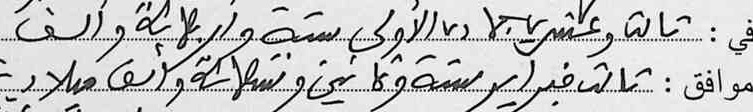 في : ثالث وعشرين جمادى الأولى ستة وأربعمائة وألف
موافق : ثالث فبراير ستة وثمانين وتسعمائة وألف ميلادية